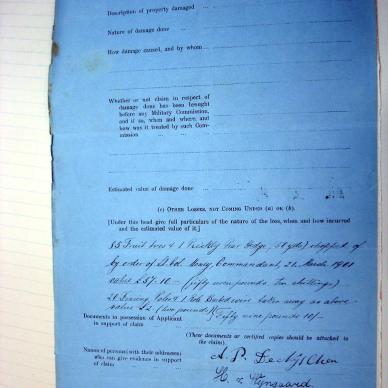 Description of property damaged ...
Nature of damage done ...
How damage caused, and by whom ...
Whether or not claim in respect of
damage done has been brought
before any Military Commission,
and if so, when and where, and
how was it treated by such Com-
mission ...
Estimated value of damage done ...
(c) OTHER LOSSES, NOT COMING UNDER (a) OR (b).
[Under this head give full particulars of the nature of the loss, when and how incurred
and the estimated value of it.]
85 Fruit trees & 1 Prickly Pear Hedge, (50 yds) chopped off
by order of Lt Col. Henry, Commandant, 22 March 1901
value £57-10- (fifty seven pounds ten shillings)
20 Fencing Poles & 1 Roll Barbed wire taken away as above
value £2 (two pounds) (Fifty nine pounds 10/-
Documents in possession of Applicant
in support of claim
(These documents or certified copies should be attached to
the claim).
Names of persons (with their addresses)
who can give evidence in support
of claim
A. P.
H. v. Wyngaard